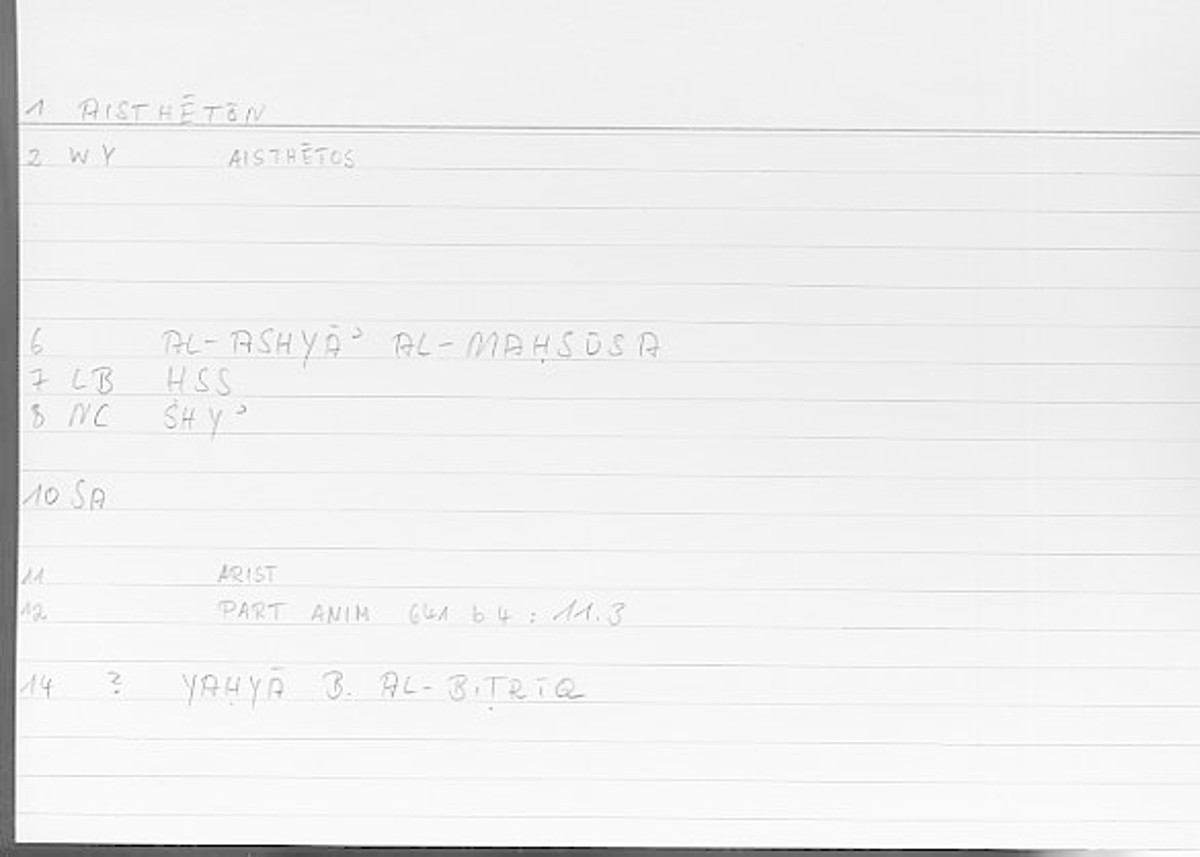 1 AISTHĒTŌN
2 WY AISTHĒTOS
6 AL-ASHYĀʾ AL-MAḤSŪSA
7 LB HSS
8 NC ŚHYʾ
10 SA
11 ARIST
12 PART ANIM 641 b 4 : 11.3
14 ? YAḤYĀ B. AL-BIṬRĪQ